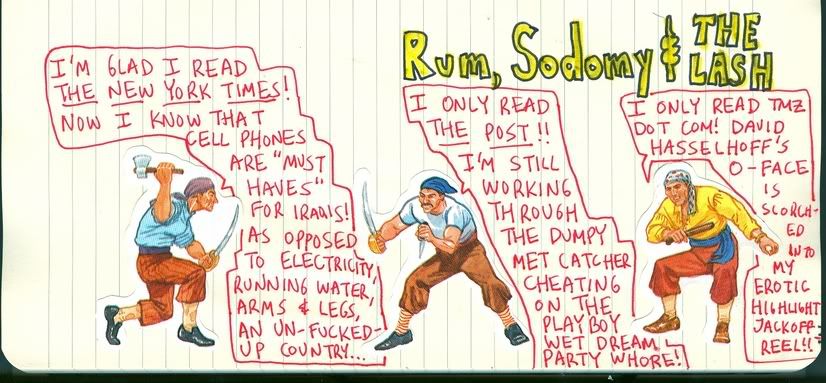 Rum, Sodomy & THE
LASH
I'M GLAD I READ
THE NEW YORK TIMES!
NOW I KNOW THAT
CELL PHONES
ARE "MUST
HAVES"
FOR IRAQIS!
AS OPPOSED
TO ELECTRICITY,
RUNNING WATER,
ARMS & LEGS,
AN UN-FUCKED-
UP COUNTRY...
I ONLY READ
THE POST!!
I'M STILL
WORKING
THROUGH
THE DUMPY
MET CATCHER
CHEATING
ON THE
PLAYBOY
WET DREAM
PARTY WHORE!
I ONLY READ TMZ
DOT COM! DAVID
HASSELHOFF'S
O-FACE
IS
SCORCH-
ED
INTO
MY
EROTIC
HIGHLIGHT
JACKOFF-
REEL!!